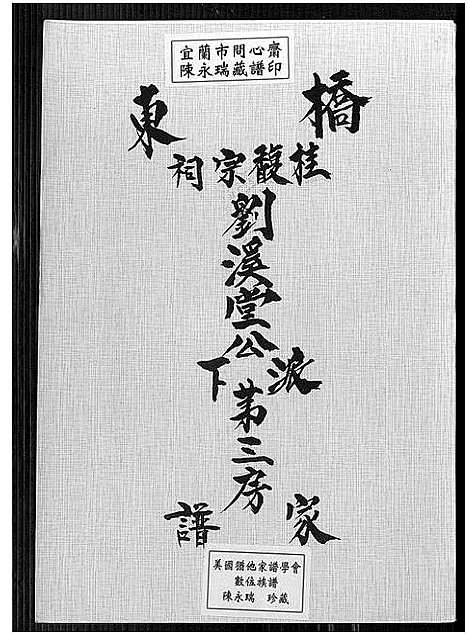 宜蘭市問心齋
陳永瑞藏譜印
橋東
桂馥宗祠
劉溪堂公
派下
第三房
家譜
美國猶他家譜學會
數位族譜
陳永瑞 珍藏